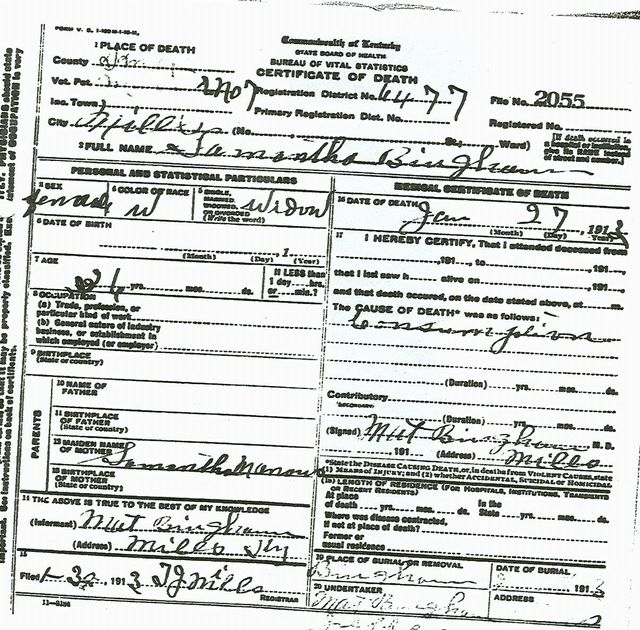 FORM V. S.
Commonwealth of Kentucky
STATE BOARD OF HEALTH
BUREAU OF VITAL STATISTICS
CERTIFICATE OF DEATH
1 PLACE OF DEATH
County
Vot. Pct.
Inc. Town
City Mills (No. St.; Ward)
Registration District No. 6477
Primary Registration Dist. No.
File No. 2055
Registered No.
[If death occurred in a hospital or institution give its NAME instead of street and number.]
2 FULL NAME Samantha Bingham
PERSONAL AND STATISTICAL PARTICULARS
3 SEX Female
4 COLOR OR RACE W
5 SINGLE, MARRIED, WIDOWED, OR DIVORCED (Write the word) Widow
6 DATE OF BIRTH
(Month) (Day) , 1 (Year)
7 AGE
yrs. mos. ds.
If LESS than 1 day hrs. or min.?
8 OCCUPATION
(a) Trade, profession, or particular kind of work
(b) General nature of industry business, or establishment in which employed (or employer)
9 BIRTHPLACE
(State or country)
PARENTS
10 NAME OF FATHER
11 BIRTHPLACE OF FATHER
(State or country)
12 MAIDEN NAME OF MOTHER Samantha
13 BIRTHPLACE OF MOTHER
(State or country)
14 THE ABOVE IS TRUE TO THE BEST OF MY KNOWLEDGE
(Informant) Mat Bingham
(Address) Mills Ky
15
Filed 1-30, 1913 T J Mills
REGISTRAR
MEDICAL CERTIFICATE OF DEATH
16 DATE OF DEATH Jan 27, 1913
(Month) (Day) (Year)
17 I HEREBY CERTIFY, That I attended deceased from
, 191 , to , 191 ,
that I last saw h alive on , 191 ,
and that death occured, on the date stated above, at m.
The CAUSE OF DEATH* was as follows:
Consumption
(Duration) yrs. mos. ds.
Contributory
(SECONDARY)
(Duration) yrs. mos. ds.
(Signed) Mat Bingham M. D.
, 191 (Address) Mills
*State the DISEASE CAUSING DEATH, or, in deaths from VIOLENT CAUSES, state (1) MEANS OF INJURY; and (2) whether ACCIDENTAL, SUICIDAL or HOMICIDAL
18 LENGTH OF RESIDENCE (FOR HOSPITALS, INSTITUTIONS, TRANSIENTS OR RECENT RESIDENTS)
At place of death yrs. mos. ds. In the State yrs. mos. ds.
Where was disease contracted, if not at place of death?
Former or usual residence
19 PLACE OF BURIAL OR REMOVAL Bingham
DATE OF BURIAL , 1913
20 UNDERTAKER Mat Bingham
ADDRESS
11-5184